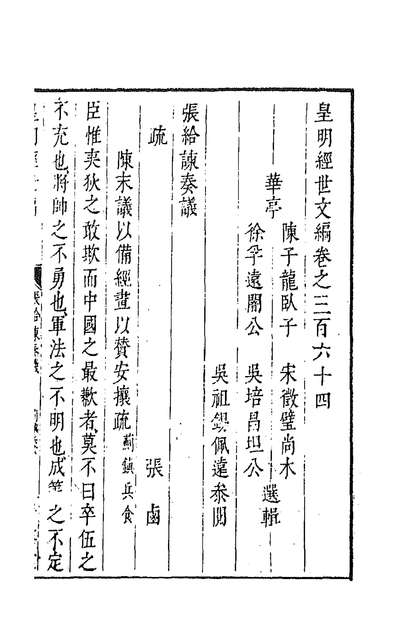 皇明經世文編卷之三百六十四
華亭
陳子龍臥子 宋徵璧尚木
徐孚遠闇公 吳培昌坦公
選輯
吳祖錫佩遠參閱
張給諫奏議
疏 張鹵
陳末議以備經畫以贊安攘疏 薊鎮兵食
臣惟夷狄之敢欺而中國之最歉者莫不曰卒伍之
不充也將帥之不勇也軍法之不明也成筭之不定